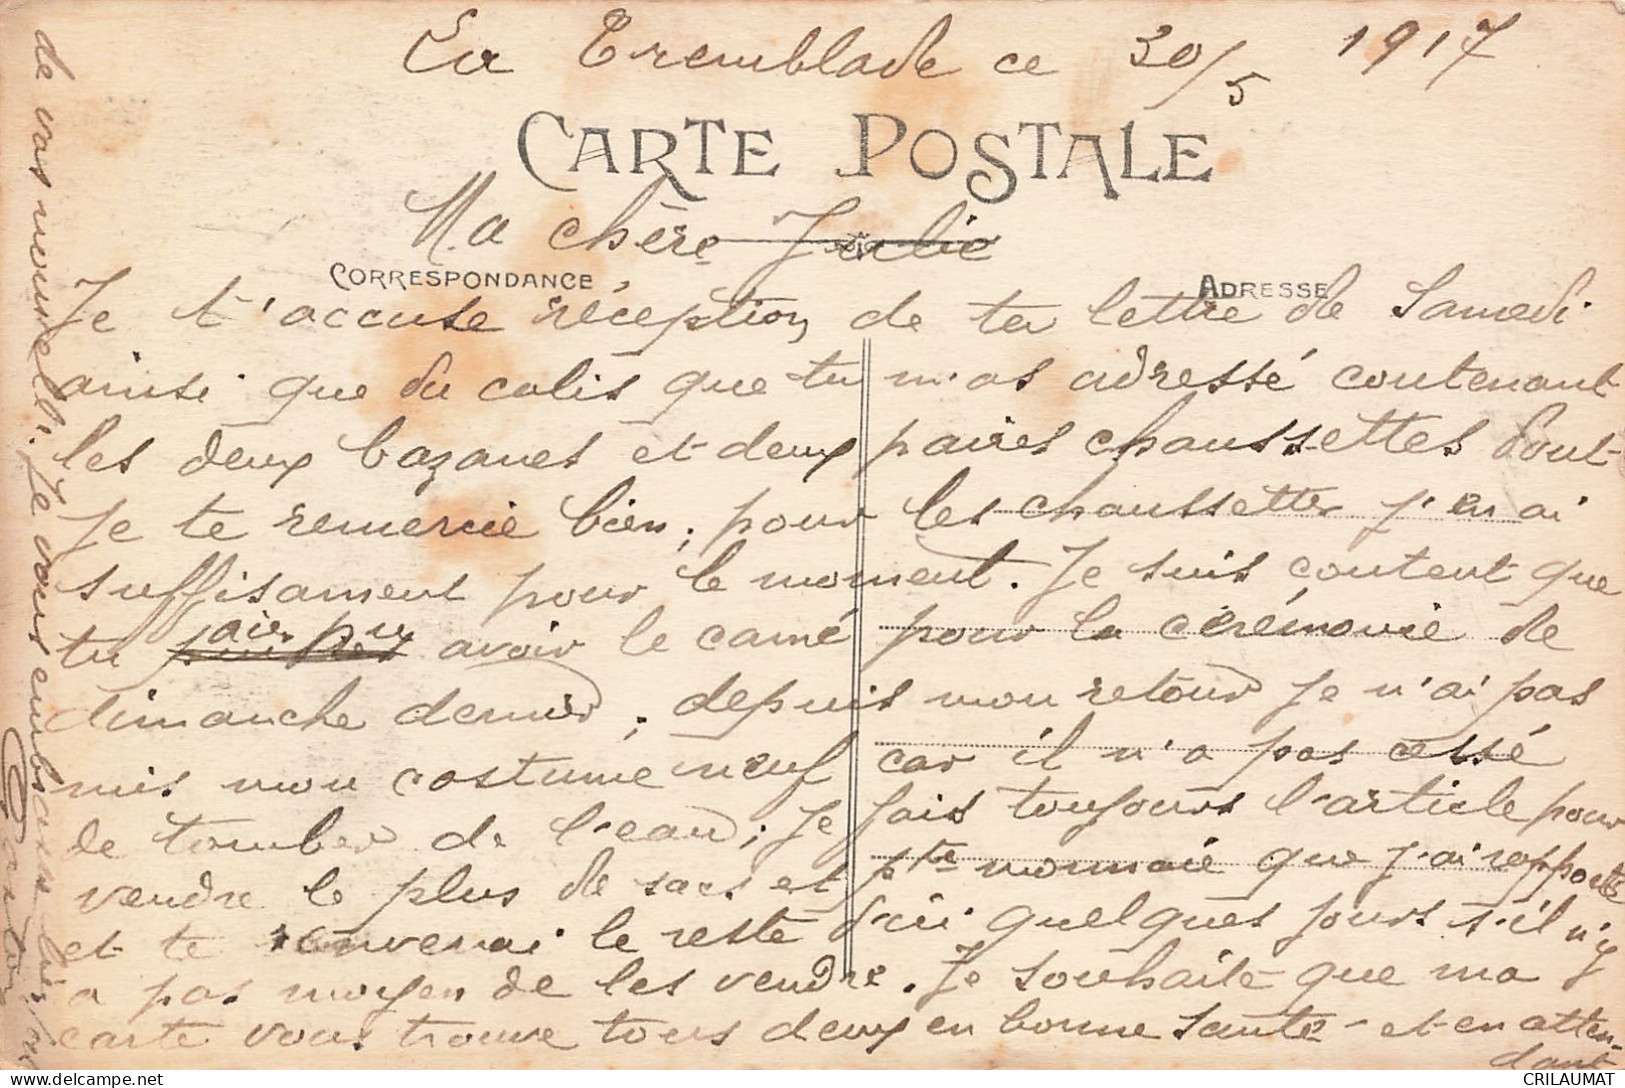 La Tremblade ce 30/5 1917
CARTE POSTALE
Ma chère Julie
CORRESPONDANCE
ADRESSE
Je t'accuse réception de ta lettre de Samedi
ainsi que du colis que tu m'as adressé contenant
les deux bazanes et deux paires chaussettes dont
je te remercie bien, pour les chaussettes j'en ai
suffisament pour le moment. Je suis content que
tu aies pu avoir le camé pour la cérémonie de
dimanche dernier, depuis mon retour je n'ai pas
mis mon costume neuf car il n'a pas cessé
de tomber de l'eau; je fais toujours l'article pour
vendre le plus de sacs et pte monnaie que j'ai rapporté
et te renverrai le reste d'ici quelques jours s'il n'y
a pas moyen de les vendre. Je souhaite que ma
carte vous trouve tous deux en bonne santé et en atten-
dant
de vos nouvelles. Je vous embrasse bien fort
Gaston
CRILAUMAT